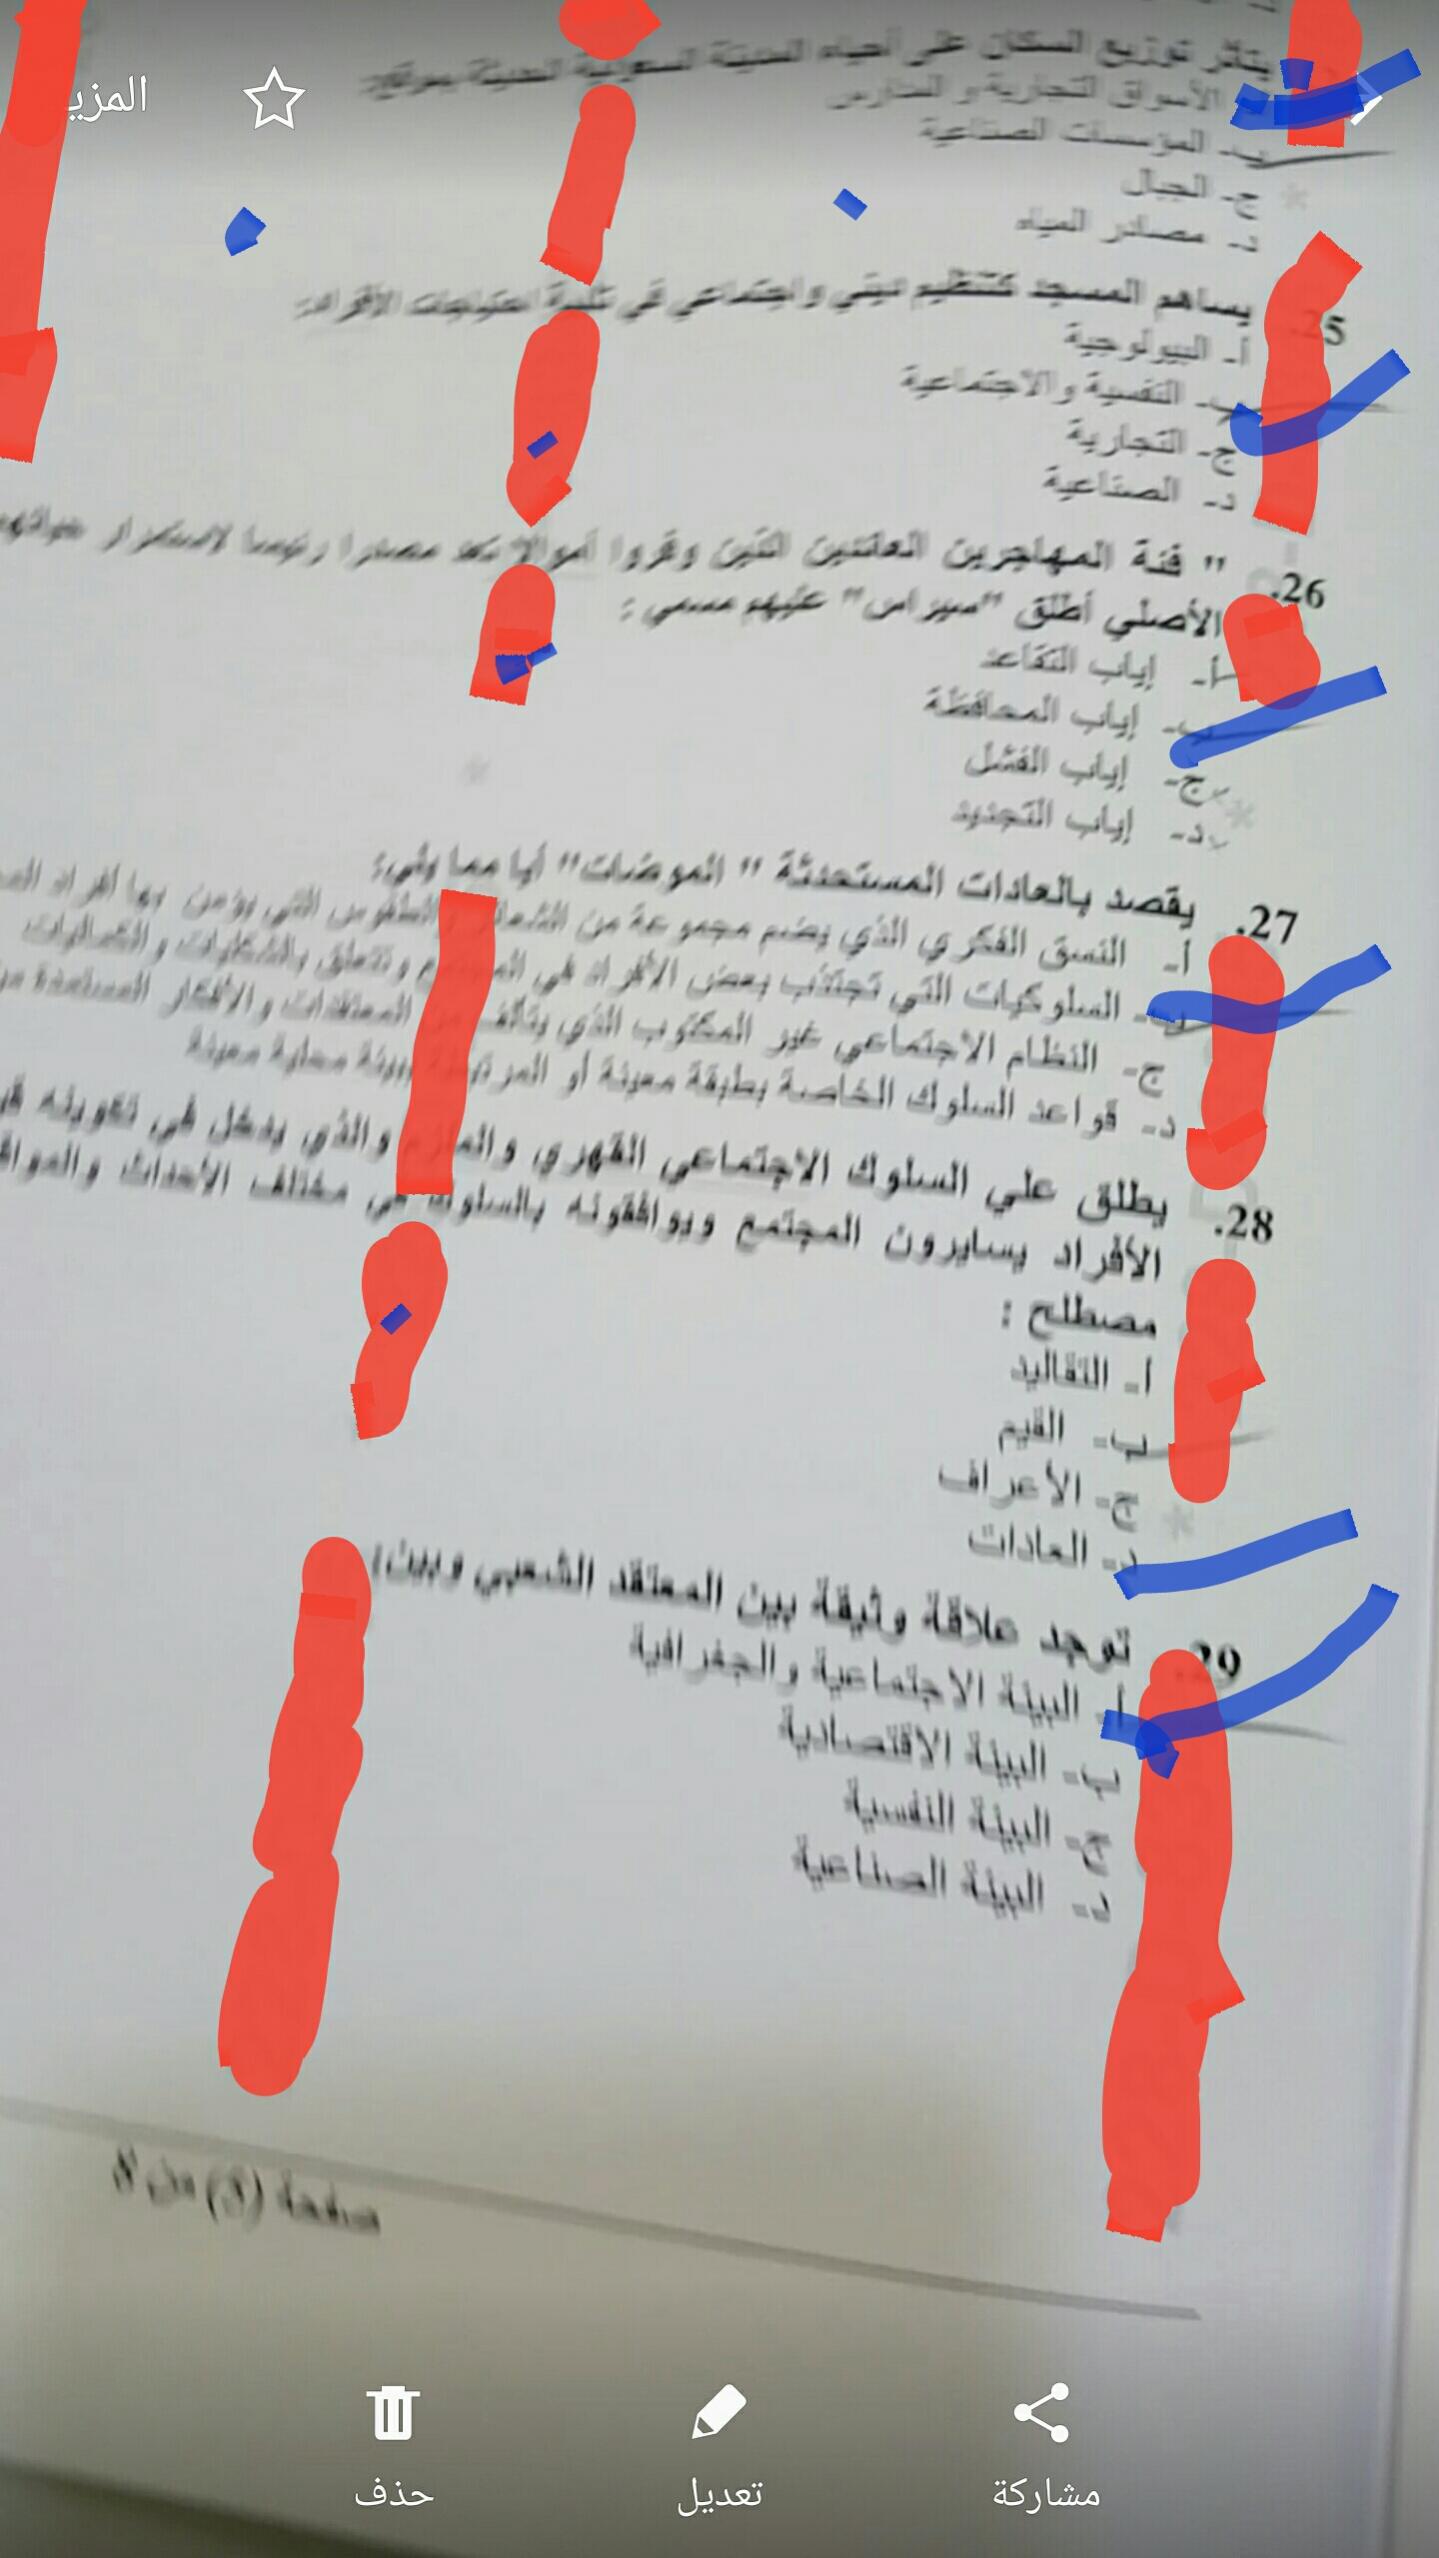 المزيد
يتأثر توزيع السكان على أحياء المدينة السعودية الحديثة بموقع:
الأسواق التجارية و المدارس
ب- المؤسسات الصناعية
ج- الجبال
د- مصادر المياه
25. يساهم المسجد كتنظيم ديني واجتماعي في تلبية احتياجات الأفراد:
أ- البيولوجية
ب- النفسية والاجتماعية
ج- التجارية
د- الصناعية
26. " فئة المهاجرين العائدين الذين وفروا أموالا تعد مصدرا رئيسا لاستمرار حياتهم
الأصلي أطلق "سيراس" عليهم مسمي :
أ- إياب التقاعد
ب- إياب المحافظة
ج- إياب الفشل
د- إياب التجديد
27. يقصد بالعادات المستحدثة " الموضات" أيا مما يلي:
أ- النسق الفكري الذي يضم مجموعة من الشعائر والطقوس التي يؤمن بها أفراد
ب- السلوكيات التي تجتذب بعض الأفراد في المجتمع وتتعلق بالشكليات والكماليات
ج- النظام الاجتماعي غير المكتوب الذي يتألف من المعتقدات والأفكار المستمدة من
د- قواعد السلوك الخاصة بطبقة معينة أو المرتبطة ببيئة محلية معينة
28. يطلق علي السلوك الاجتماعي القهري والملزم والذي يدخل في تكوينه
الأفراد يسايرون المجتمع ويوافقونه بالسلوك في مختلف الأحداث
مصطلح :
أ- التقاليد
ب- القيم
ج- الأعراف
د- العادات
29. توجد علاقة وثيقة بين المعتقد الشعبي وبين:
أ- البيئة الاجتماعية والجغرافية
ب- البيئة الاقتصادية
ج- البيئة النفسية
د- البيئة الصناعية
صفحة (3) من 8
مشاركة
تعديل
حذف